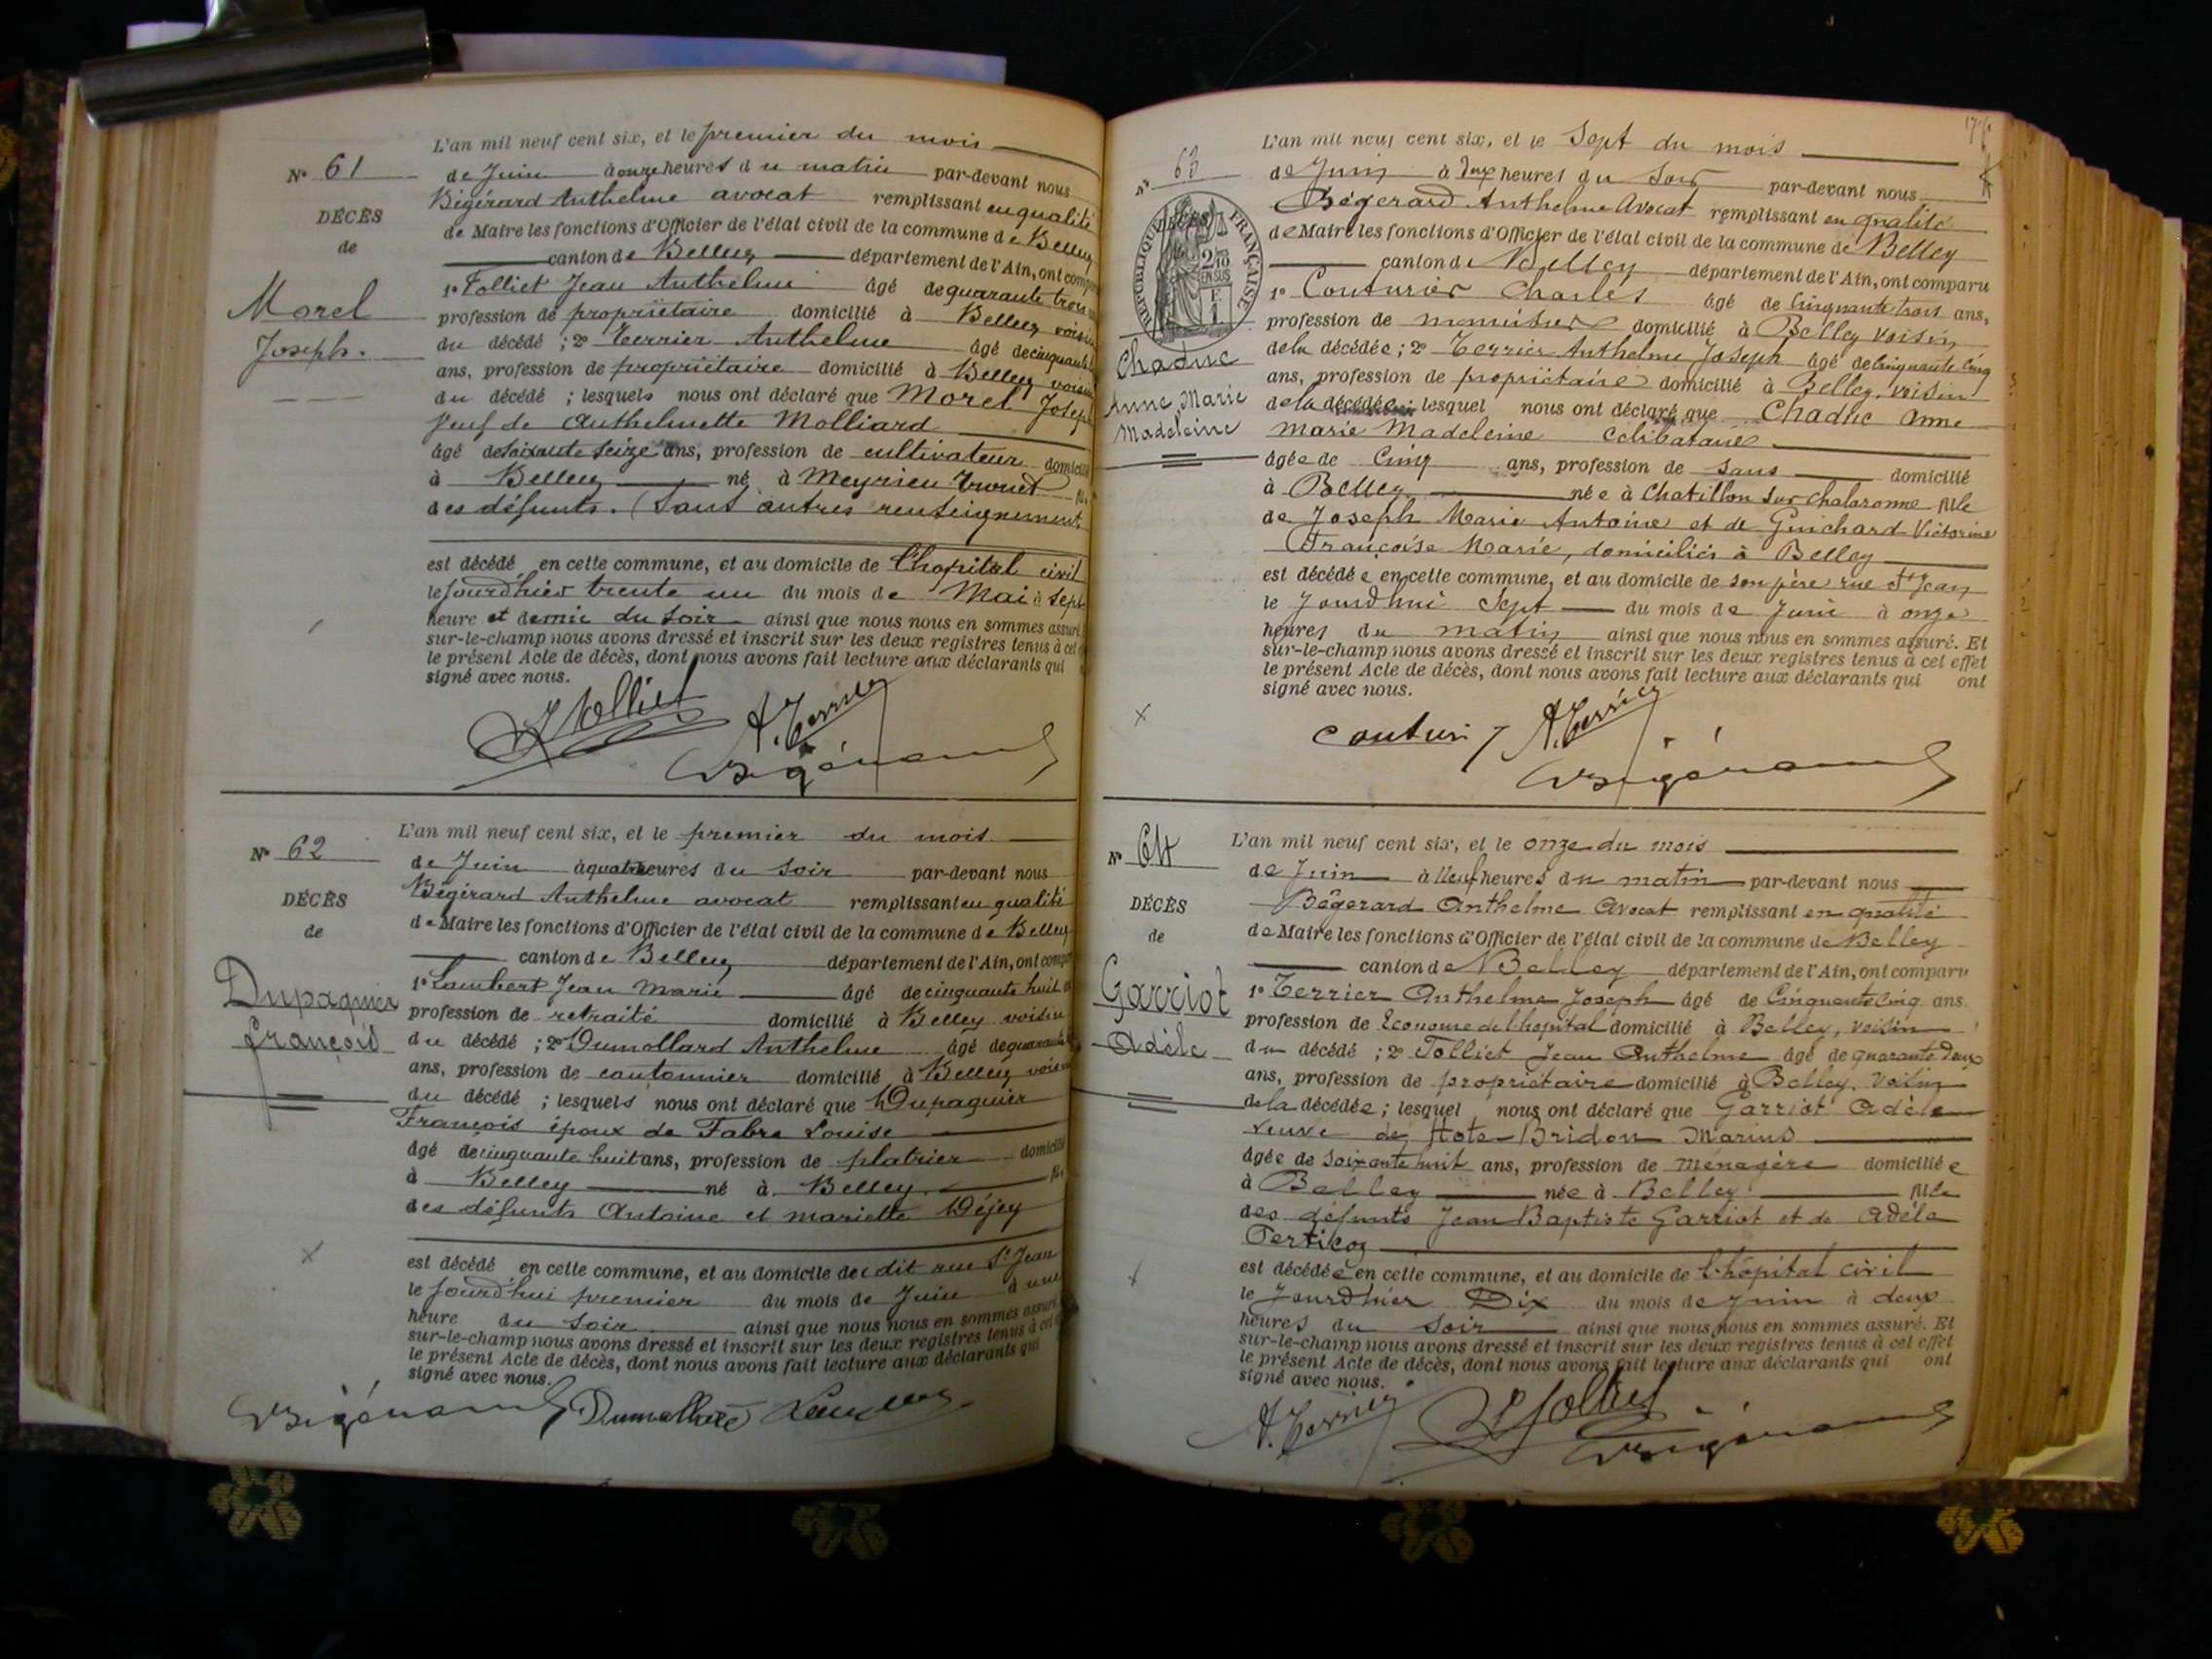 L'an mil neuf cent six, et le premier du mois
N° 61
de Juin à onze heures du matin par-devant nous
Bégérard Anthelme avocat remplissant en qualité
DÉCÈS
de Maire les fonctions d'Officier de l'état civil de la commune de Belley
de
canton de Belley département de l'Ain, ont comp
Morel
1° Folliet Jean Anthelme âgé de quarante trois
Joseph.
profession de propriétaire domicilié à Belley voisin
du décédé ; 2° Terrier Anthelme âgé de cinquante
ans, profession de propriétaire domicilié à Belley voisin
du décédé ; lesquels nous ont déclaré que Morel Joseph
Veuf de Anthelmette Molliard
âgé de soixante seize ans, profession de cultivateur domicilié
à Belley né à Meyrieu Trouet fils
des défunts. (Sans autres renseignements
est décédé en cette commune, et au domicile de l'hopital civil
le jourd'hier trente un du mois de Mai à sept
heure et demie du soir ainsi que nous nous en sommes assuré
sur-le-champ nous avons dressé et inscrit sur les deux registres tenus à cet
le présent Acte de décès, dont nous avons fait lecture aux déclarants qui
signé avec nous.
J Folliet A. Terrier
Bégérard
L'an mil neuf cent six, et le premier du mois
N° 62
de Juin à quatre heures du soir par-devant nous
Bégérard Anthelme avocat remplissant en qualité
DÉCÈS
de Maire les fonctions d'Officier de l'état civil de la commune de Belley
de
canton de Belley département de l'Ain, ont comp
Dupaquier
1° Lambert Jean Marie âgé de cinquante huit
françois
profession de retraité domicilié à Belley voisin
du décédé ; 2° Dumollard Anthelme âgé de quarante
ans, profession de cantonnier domicilié à Belley voisin
du décédé ; lesquels nous ont déclaré que Dupaquier
François époux de Fabre Louise
âgé de cinquante huit ans, profession de platrier domicilié
à Belley né à Belley fils
des défunts Antoine et mariette Déjey
est décédé en cette commune, et au domicile de c dit rue St Jean
le jourd'hui premier du mois de Juin à une
heure du soir ainsi que nous nous en sommes assuré
sur-le-champ nous avons dressé et inscrit sur les deux registres tenus à cet
le présent Acte de décès, dont nous avons fait lecture aux déclarants qui
signé avec nous.
Bégérard Dumollard Lambert
L'an mil neuf cent six, et le Sept du mois
N° 63
de Juin à deux heures du Soir par-devant nous
Bégerard Anthelme Avocat remplissant en qualité
RÉPUBLIQUE FRANÇAISE
2/10 EN SUS
de Maire les fonctions d'Officier de l'état civil de la commune de Belley
canton de Belley département de l'Ain, ont comparu
1° Couturier Charles âgé de Cinquante trois ans,
profession de menuisier domicilié à Belley Voisin
Chaduc
de la décédée ; 2° Terrier Anthelme Joseph âgé de Cinquante Cinq
ans, profession de propriétaire domicilié à Belley, voisin
Anne Marie
de la décédée ; lesquel nous ont déclaré que Chaduc Anne
Madeleine
Marie Madeleine Célibataire
âgée de Cinq ans, profession de Sans domicilié
à Belley née à Chatillon sur Chalaronne fille
de Joseph Marie Antoine et de Guichard Victorine
Françoise Marie, domiciliés à Belley
est décédée en cette commune, et au domicile de son père rue St Jean
le Jourd'hui Sept du mois de Juin à onze
heures du matin ainsi que nous nous en sommes assuré. Et
sur-le-champ nous avons dressé et inscrit sur les deux registres tenus à cet effet
le présent Acte de décès, dont nous avons fait lecture aux déclarants qui ont
signé avec nous.
couturi A. Terrier
Bégérard
L'an mil neuf cent six, et le onze du mois
N° 64
de Juin à Neuf heures du matin par-devant nous
DÉCÈS
Bégerard Anthelme Avocat remplissant en qualité
de
de Maire les fonctions d'Officier de l'état civil de la commune de Belley
canton de Belley département de l'Ain, ont comparu
Garriot
1° Terrier Anthelme Joseph âgé de Cinquante Cinq ans
profession de Econome de l'hopital domicilié à Belley, Voisin
Adèle
du décédé ; 2° Folliet Jean Anthelme âgé de quarante deux
ans, profession de propriétaire domicilié à Belley, Voisin
de la décédée ; lesquel nous ont déclaré que Garriot Adèle
Veuve de Hote-Bridon Marius
âgée de Soixante huit ans, profession de Ménagère domiciliée
à Belley née à Belley fille
des défunts Jean Baptiste Garriot et de Adèle
Perticoz
est décédée en cette commune, et au domicile de l'hôpital civil
le Jourd'hier Dix du mois de Juin à deux
heures du Soir ainsi que nous nous en sommes assuré. Et
sur-le-champ nous avons dressé et inscrit sur les deux registres tenus à cet effet
le présent Acte de décès, dont nous avons fait lecture aux déclarants qui ont
signé avec nous.
A. Terrier J Folliet
Bégérard